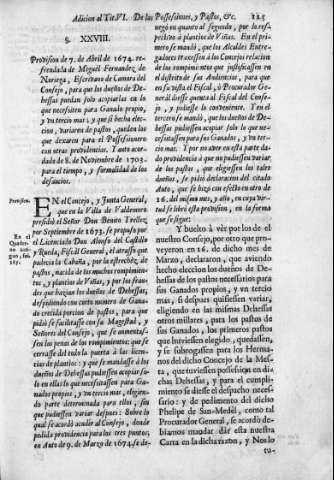 Adicion al Tit. VI. De las Possessiones, y Pastos, &c. 125
§. XXVIII.
Provision de 7. de Abril de 1674. re-
frendada de Miguèl Fernandez de
Noriega, Escrivano de Camara del
Consejo, para que los dueños de De-
hessas puedan solo acopiarlas en lo
que necessiten para Ganado propio,
y un tercio mas; y que si hecha elec-
cion, variaren de pastos, queden los
que dexaren para el Possessionero
con otras providencias. Y auto acor-
dado de 8. de Noviembre de 1703.
para el tiempo, y formalidad de los
desaucios.
Provision.
En el
Quader-
no anti-
guo, fol.
EN el Concejo, y Junta General,
que en la Villa de Valdemoro
presidiò el Señor Don Benito Trelles
por Septiembre de 1673. se propuso por
el Licenciado Don Alonso del Castillo
y Rueda, Fiscal General, el atrasso que
padecia la Cabaña, por la estrechèz de
pastos, nacida de los muchos rompimien-
tos, y plantìos de Viñas, y por los frau-
des que hazian los dueños de Dehessas,
despidiendo con cierto numero de Gana-
do crecida porcion de pastos, para que
pidiò se suplicasse con su Magestad, y
Señores del Consejo, que se aumentas-
sen las penas de los rompimientos: que se
cerrasse del todo la puerta à las licen-
cias de plantìos: y que se mandasse à los
dueños de Dehessas pudiessen acopiar so-
lo en ellas lo que necessitassen para Ga-
nados propios, y un tercio mas, eligien-
do parte determinada para ellos, sin
que pudiessen variar despues: Sobre lo
qual se acordò acudir al Consejo, donde
pedidos quatro puntos por lo referido,
en Auto de 9. de Marzo de 1674. se de-
negò en quanto al segundo, por lo res-
pectivo à plantìos de Viñas. En el pri-
mero se mandò, que los Alcaldes Entre-
gadores traxessen à los Consejos relacion
de los rompimientos que justificassen en el
distrito de su Audiencia, para que
en su vista el Fiscal, ò Procurador Gene-
ral diesse quenta al Fiscal del Conse-
jo, y pidiesse lo conveniente. Y en el
tercero se mandò, que los dueños de De-
hessas pudiessen acopiar solo lo que ne-
cessitassen para sus Ganados, y un ter-
cio mas: Y por no aver en esta parte da-
do providencia à que no pudiessen variar
de los pastos, que eligiessen tales due-
ños, se pidiò declaracion del citado
Auto, que se hizo con efecto en otro de
16. del mismo mes, y año, en cuya vir-
tud se librò esta provision, en la forma
que se sigue:
Y buelto à vèr por los de
nuestro Consejo, por otro que pro-
veyeron en 16. de dicho mes de
Marzo, declararon, que aviendo
hecho eleccion los dueños de De-
hessas de los pastos necessarios para
sus Ganados propios, y un tercio
mas, si despues quisiessen variar,
eligiendo en las mismas Dehessas
otros millares, para los pastos de
sus Ganados, los primeros pastos
que huviessen elegido, quedassen,
y se subrogassen para los Herma-
nos del dicho Concejo de la Mes-
ta, que tuviessen possession en di-
chas Dehessas, y para el cumpli-
miento se diesse el despacho neces-
sario: y de pedimento del dicho
Phelipe de San-Medèl, como tal
Procurador General, se acordò de-
biamos mandar dàr esta nuestra
Carta en la dicha razon, y Nos lo
tu-